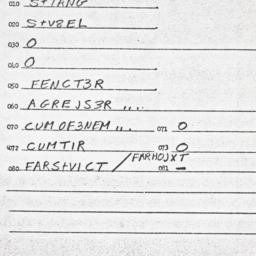 010 S+IANG
020 S+V8EL
030 O
040 O
050 FENCT3R
060 AGREJS3R ,,..
070 CUMOF3NEM ,,. 071 O
072 CUMTIR 073 O
080 FARS+VICT / FARHOJXT 081 –